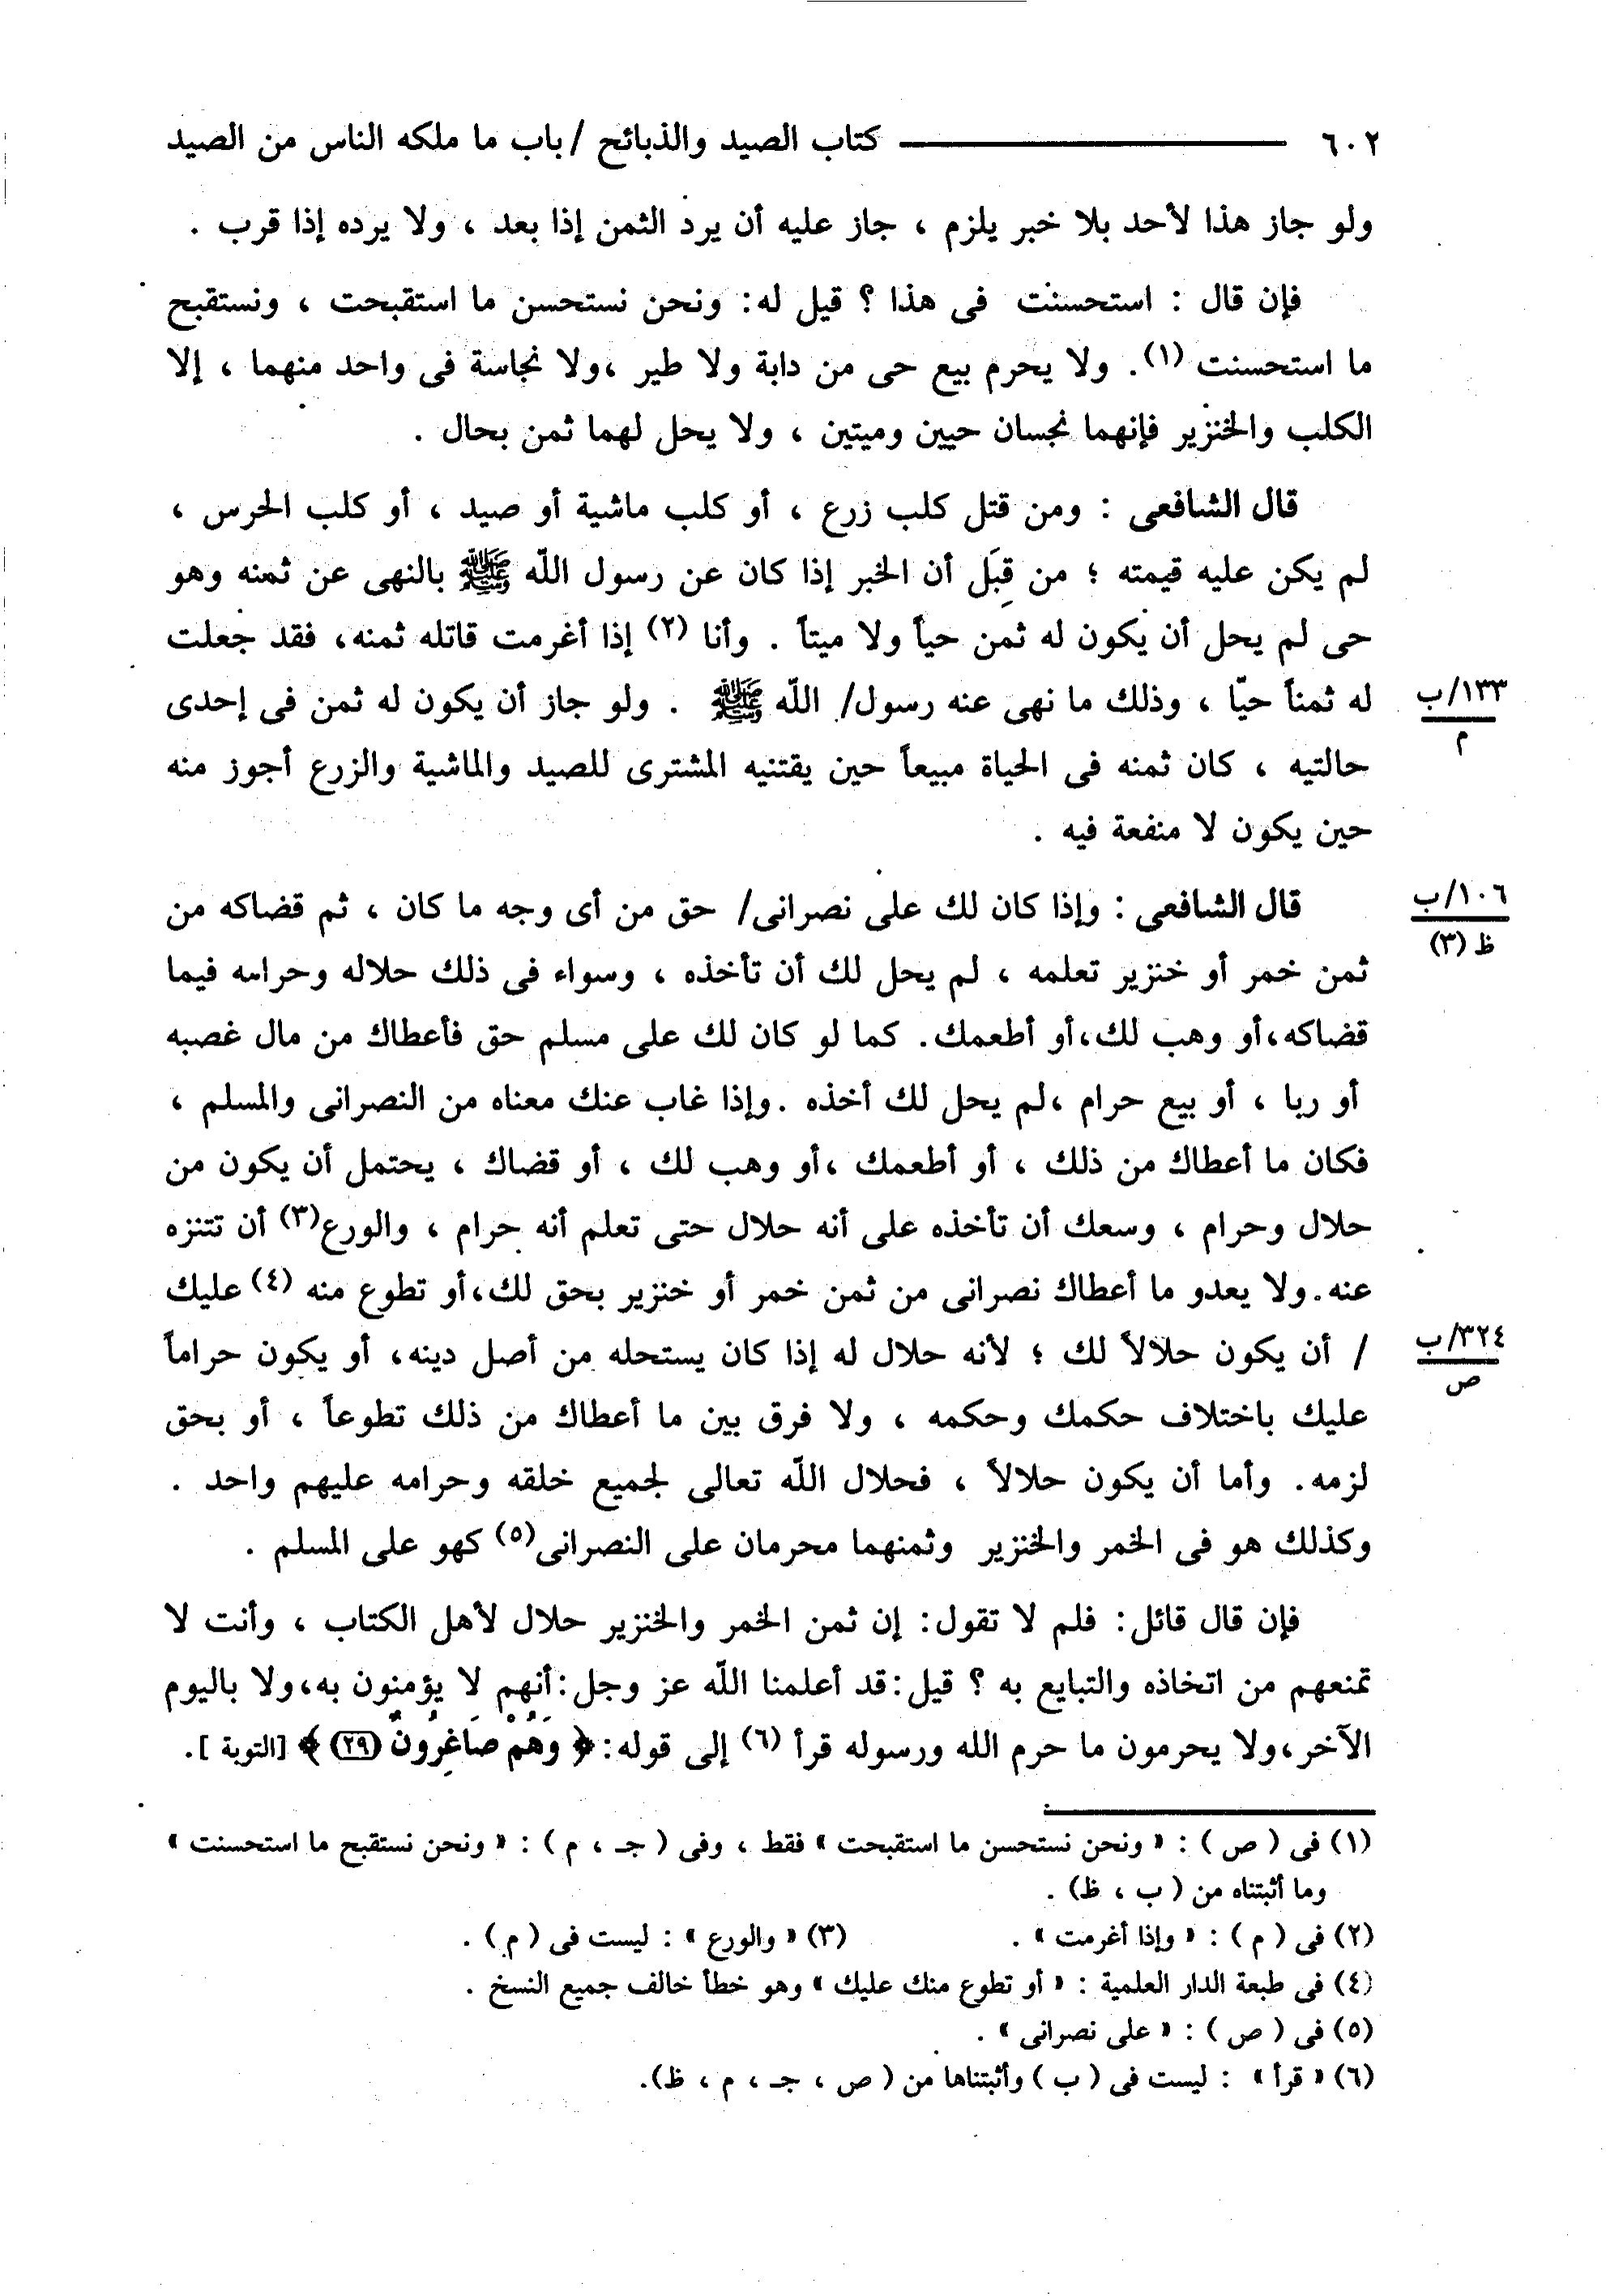 ٦٠٢ كتاب الصيد والذبائح / باب ما ملكه الناس من الصيد
ولو جاز هذا لأحد بلا خبر يلزم ، جاز عليه أن يرد الثمن إذا بعد ، ولا يرده إذا قرب .
فإن قال : استحسنت فى هذا ؟ قيل له: ونحن نستحسن ما استقبحت ، ونستقبح
ما استحسنت (١). ولا يحرم بيع حى من دابة ولا طير ،ولا نجاسة فى واحد منهما ، إلا
الكلب والخنزير فإنهما نجسان حيين وميتين ، ولا يحل لهما ثمن بحال .
قال الشافعى : ومن قتل كلب زرع ، أو كلب ماشية أو صيد ، أو كلب الحرس ،
لم يكن عليه قيمته ؛ من قِبَل أن الخبر إذا كان عن رسول الله ﷺ بالنهى عن ثمنه وهو
حى لم يحل أن يكون له ثمن حياً ولا ميتاً . وأنا (٢) إذا أغرمت قاتله ثمنه، فقد جعلت
له ثمناً حيّا ، وذلك ما نهى عنه رسول/ الله ﷺ . ولو جاز أن يكون له ثمن فى إحدى
١٣٣/ب
م
حالتيه ، كان ثمنه فى الحياة مبيعاً حين يقتنيه المشترى للصيد والماشية والزرع أجوز منه
حين يكون لا منفعة فيه .
قال الشافعى : وإذا كان لك على نصرانى/ حق من أى وجه ما كان ، ثم قضاكه من
١٠٦/ب
ظ (٣)
ثمن خمر أو خنزير تعلمه ، لم يحل لك أن تأخذه ، وسواء فى ذلك حلاله وحرامه فيما
قضاكه،أو وهب لك،أو أطعمك. كما لو كان لك على مسلم حق فأعطاك من مال غصبه
أو ربا ، أو بيع حرام ،لم يحل لك أخذه .وإذا غاب عنك معناه من النصرانى والمسلم ،
فكان ما أعطاك من ذلك ، أو أطعمك ،أو وهب لك ، أو قضاك ، يحتمل أن يكون من
حلال وحرام ، وسعك أن تأخذه على أنه حلال حتى تعلم أنه حرام ، والورع(٣) أن تتنزه
عنه.ولا يعدو ما أعطاك نصرانى من ثمن خمر أو خنزير بحق لك،أو تطوع منه (٤) عليك
/ أن يكون حلالاً لك ؛ لأنه حلال له إذا كان يستحله من أصل دينه، أو يكون حراماً
٣٢٤/ب
ص
عليك باختلاف حكمك وحكمه ، ولا فرق بين ما أعطاك من ذلك تطوعاً ، أو بحق
لزمه. وأما أن يكون حلالاً ، فحلال الله تعالى لجميع خلقه وحرامه عليهم واحد .
وكذلك هو فى الخمر والخنزير وثمنهما محرمان على النصرانى(٥) كهو على المسلم .
فإن قال قائل: فلم لا تقول: إن ثمن الخمر والخنزير حلال لأهل الكتاب ، وأنت لا
تمنعهم من اتخاذه والتبايع به ؟ قيل:قد أعلمنا الله عز وجل:أنهم لا يؤمنون به،ولا باليوم
الآخر،ولا يحرمون ما حرم الله ورسوله قرأ (٦) إلى قوله: ﴿ وَهُمْ صَاغِرُونَ (٢٩) ﴾ [التوبة ].
(١) فى ( ص ) : « ونحن نستحسن ما استقبحت » فقط ، وفى ( جـ ، م ) : « ونحن نستقبح ما استحسنت »
وما أثبتناه من ( ب ، ظ) .
(٢) فى ( م ) : « وإذا أغرمت » . (٣) « والورع » : ليست فى ( م ) .
(٤) فى طبعة الدار العلمية : « أو تطوع منك عليك » وهو خطأ خالف جميع النسخ .
(٥) فى ( ص ) : « على نصرانى » .
(٦) « قرأ » : ليست فى ( ب ) وأثبتناها من ( ص ، جـ ، م ، ظ).